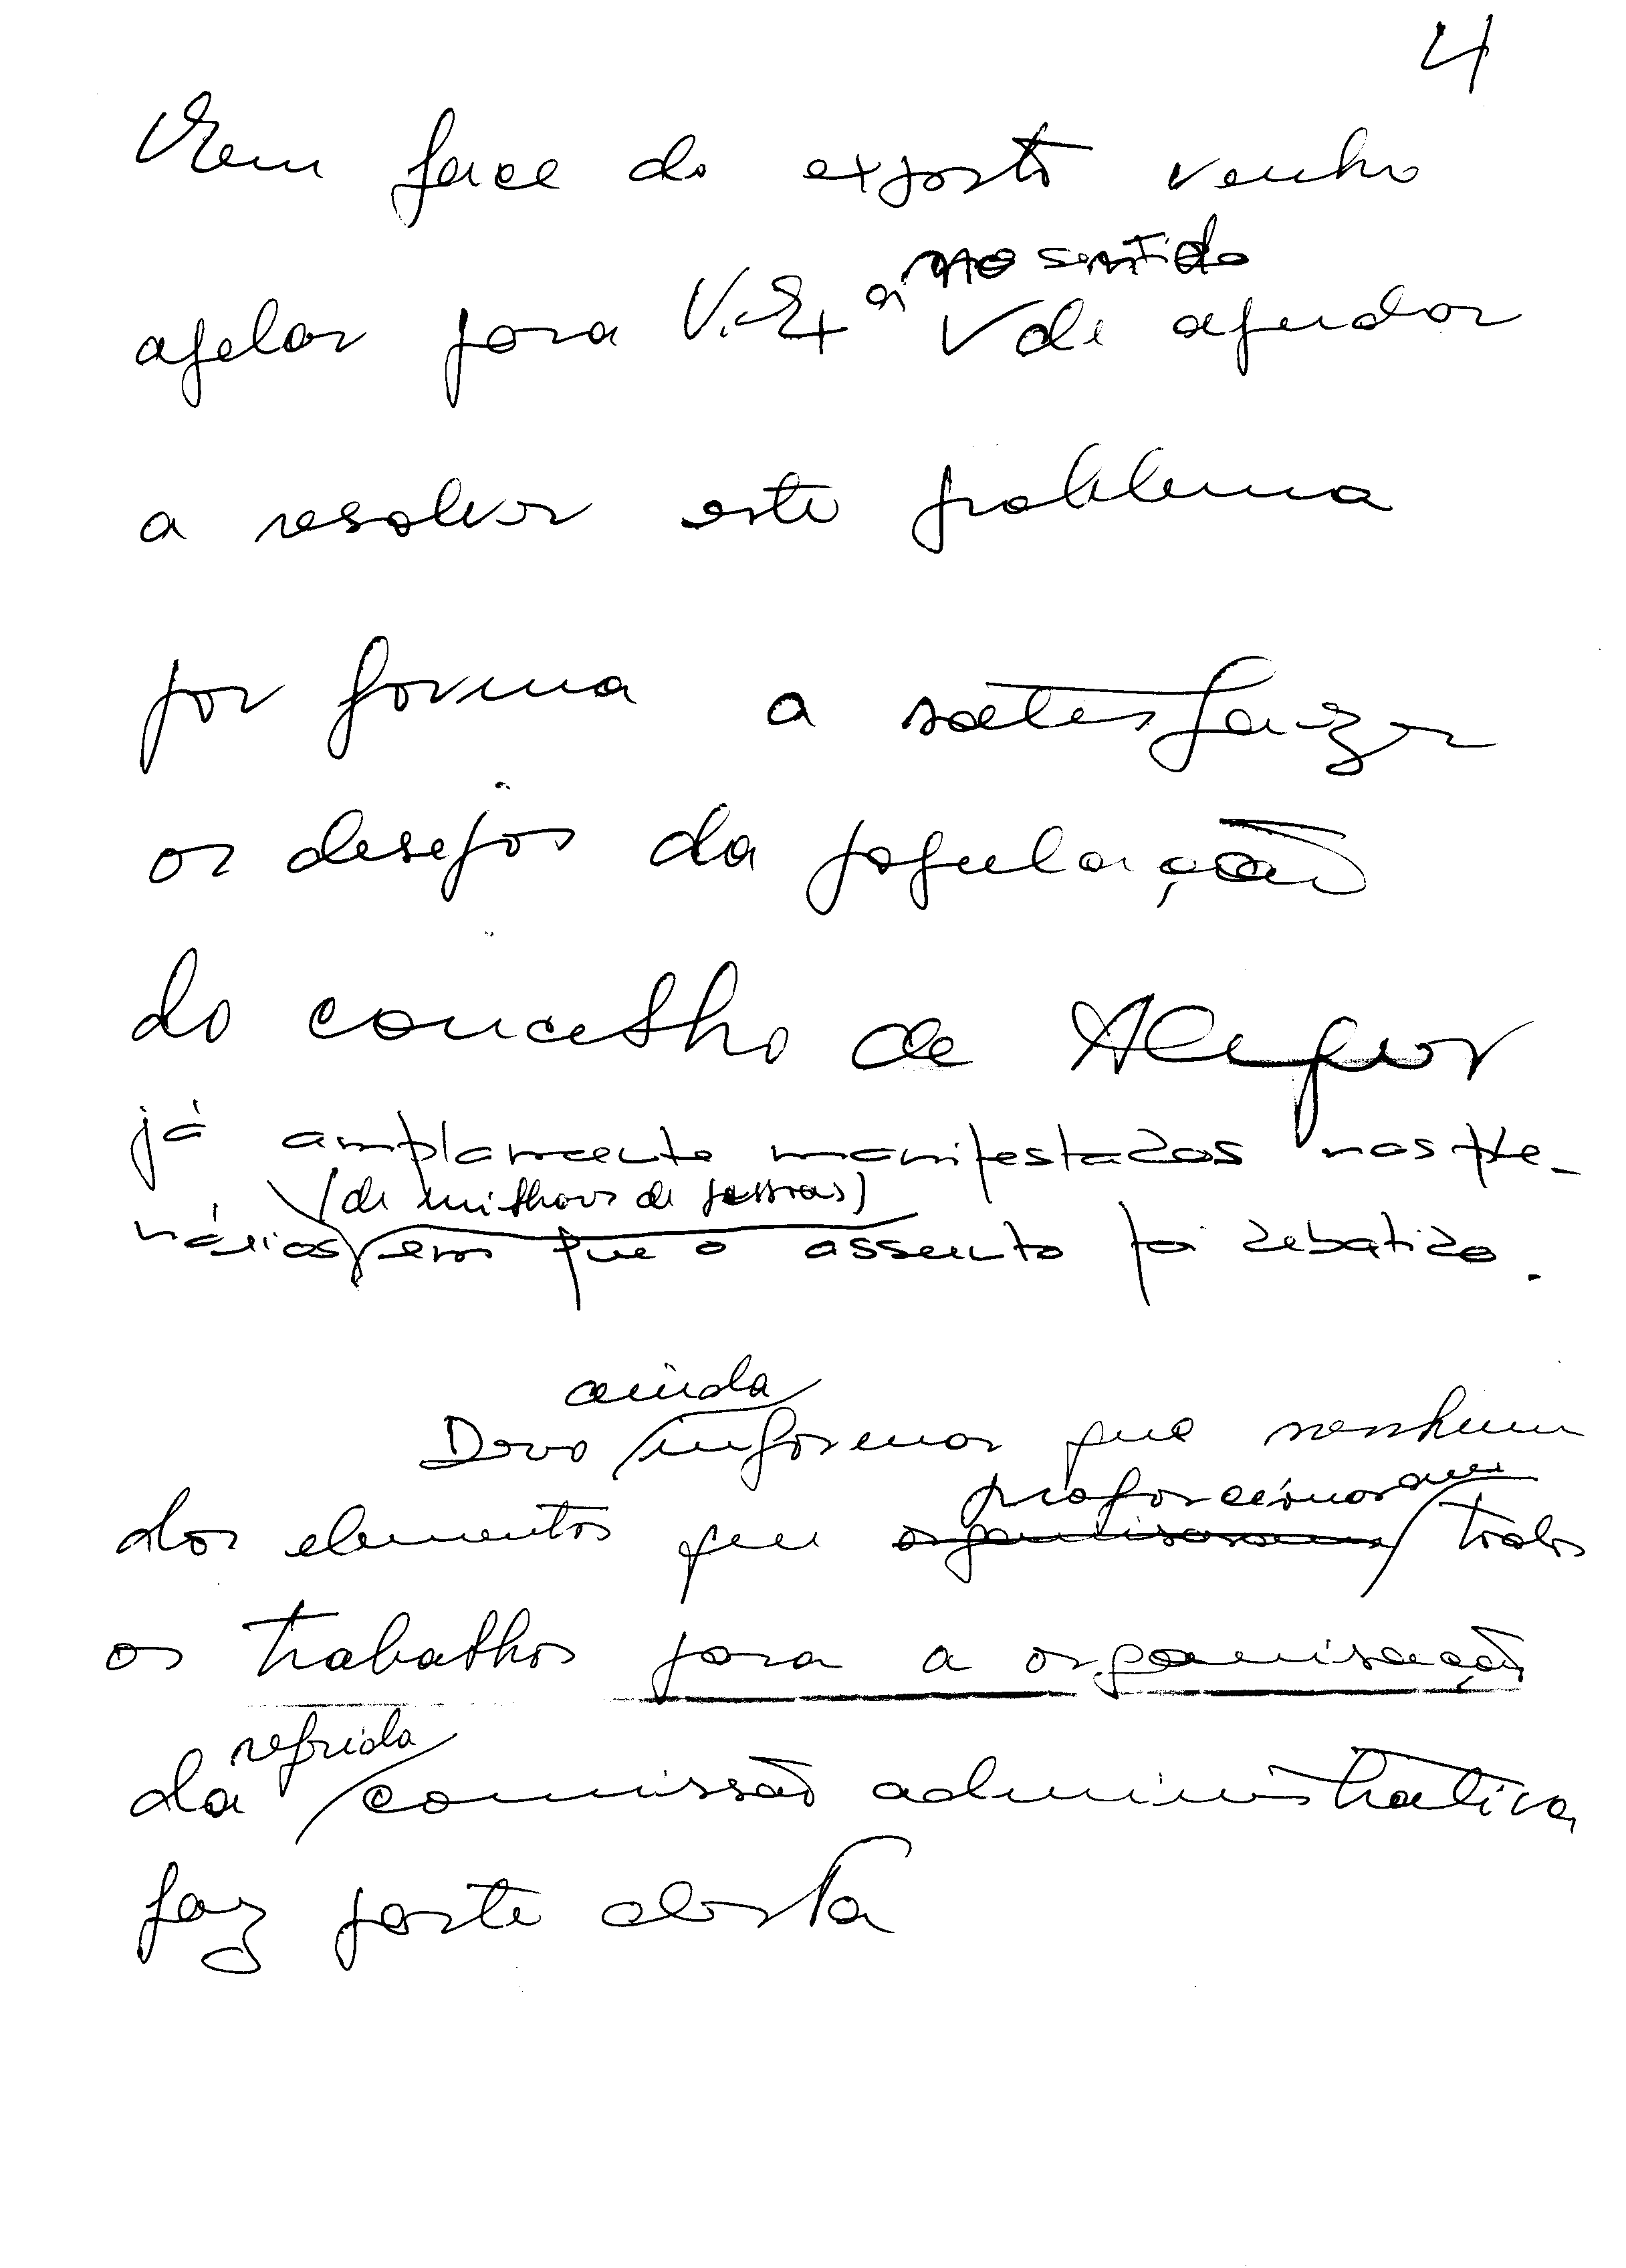 4
Em face do exposto venho
no sentido
apelar para V. Exª de ajudar
a resolver este problema
por forma a satisfazer
os desejos da população
do concelho de Aljezur
já amplamente manifestados nos ple-
(de milhares de pessoas)
nários em que o assunto foi debatido.
ainda
Devo informar que nenhum
proporcionaram
dos elementos que organisaram todos
os trabalhos para a organisação
referida
da comissão administrativa
faz parte desta